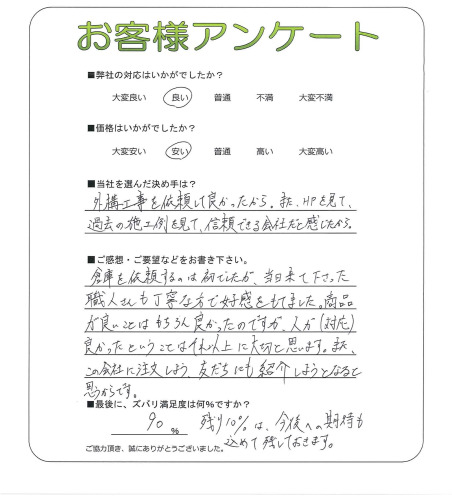 お客様アンケート
■弊社の対応はいかがでしたか？
大変良い 良い 普通 不満 大変不満
■価格はいかがでしたか？
大変安い 安い 普通 高い 大変高い
■当社を選んだ決め手は？
外構工事を依頼して良かったから。また、HPを見て、
過去の施工例を見て、信頼できる会社だと感じたから。
■ご感想・ご要望などをお書き下さい。
倉庫を依頼するのは初でしたが、当日来て下さった
職人さんも丁寧な方で好感をもてました。商品
が良いことはもちろん良かったのですが、人が（対応）
良かったということはそれ以上に大切と思います。また、
この会社に注文しよう、友だちにも紹介しようとなると
思うからです。
■最後に、ズバリ満足度は何%ですか？
90 % 残り10%は、今後への期待も
込めて残しておきます。
ご協力頂き、誠にありがとうございました。